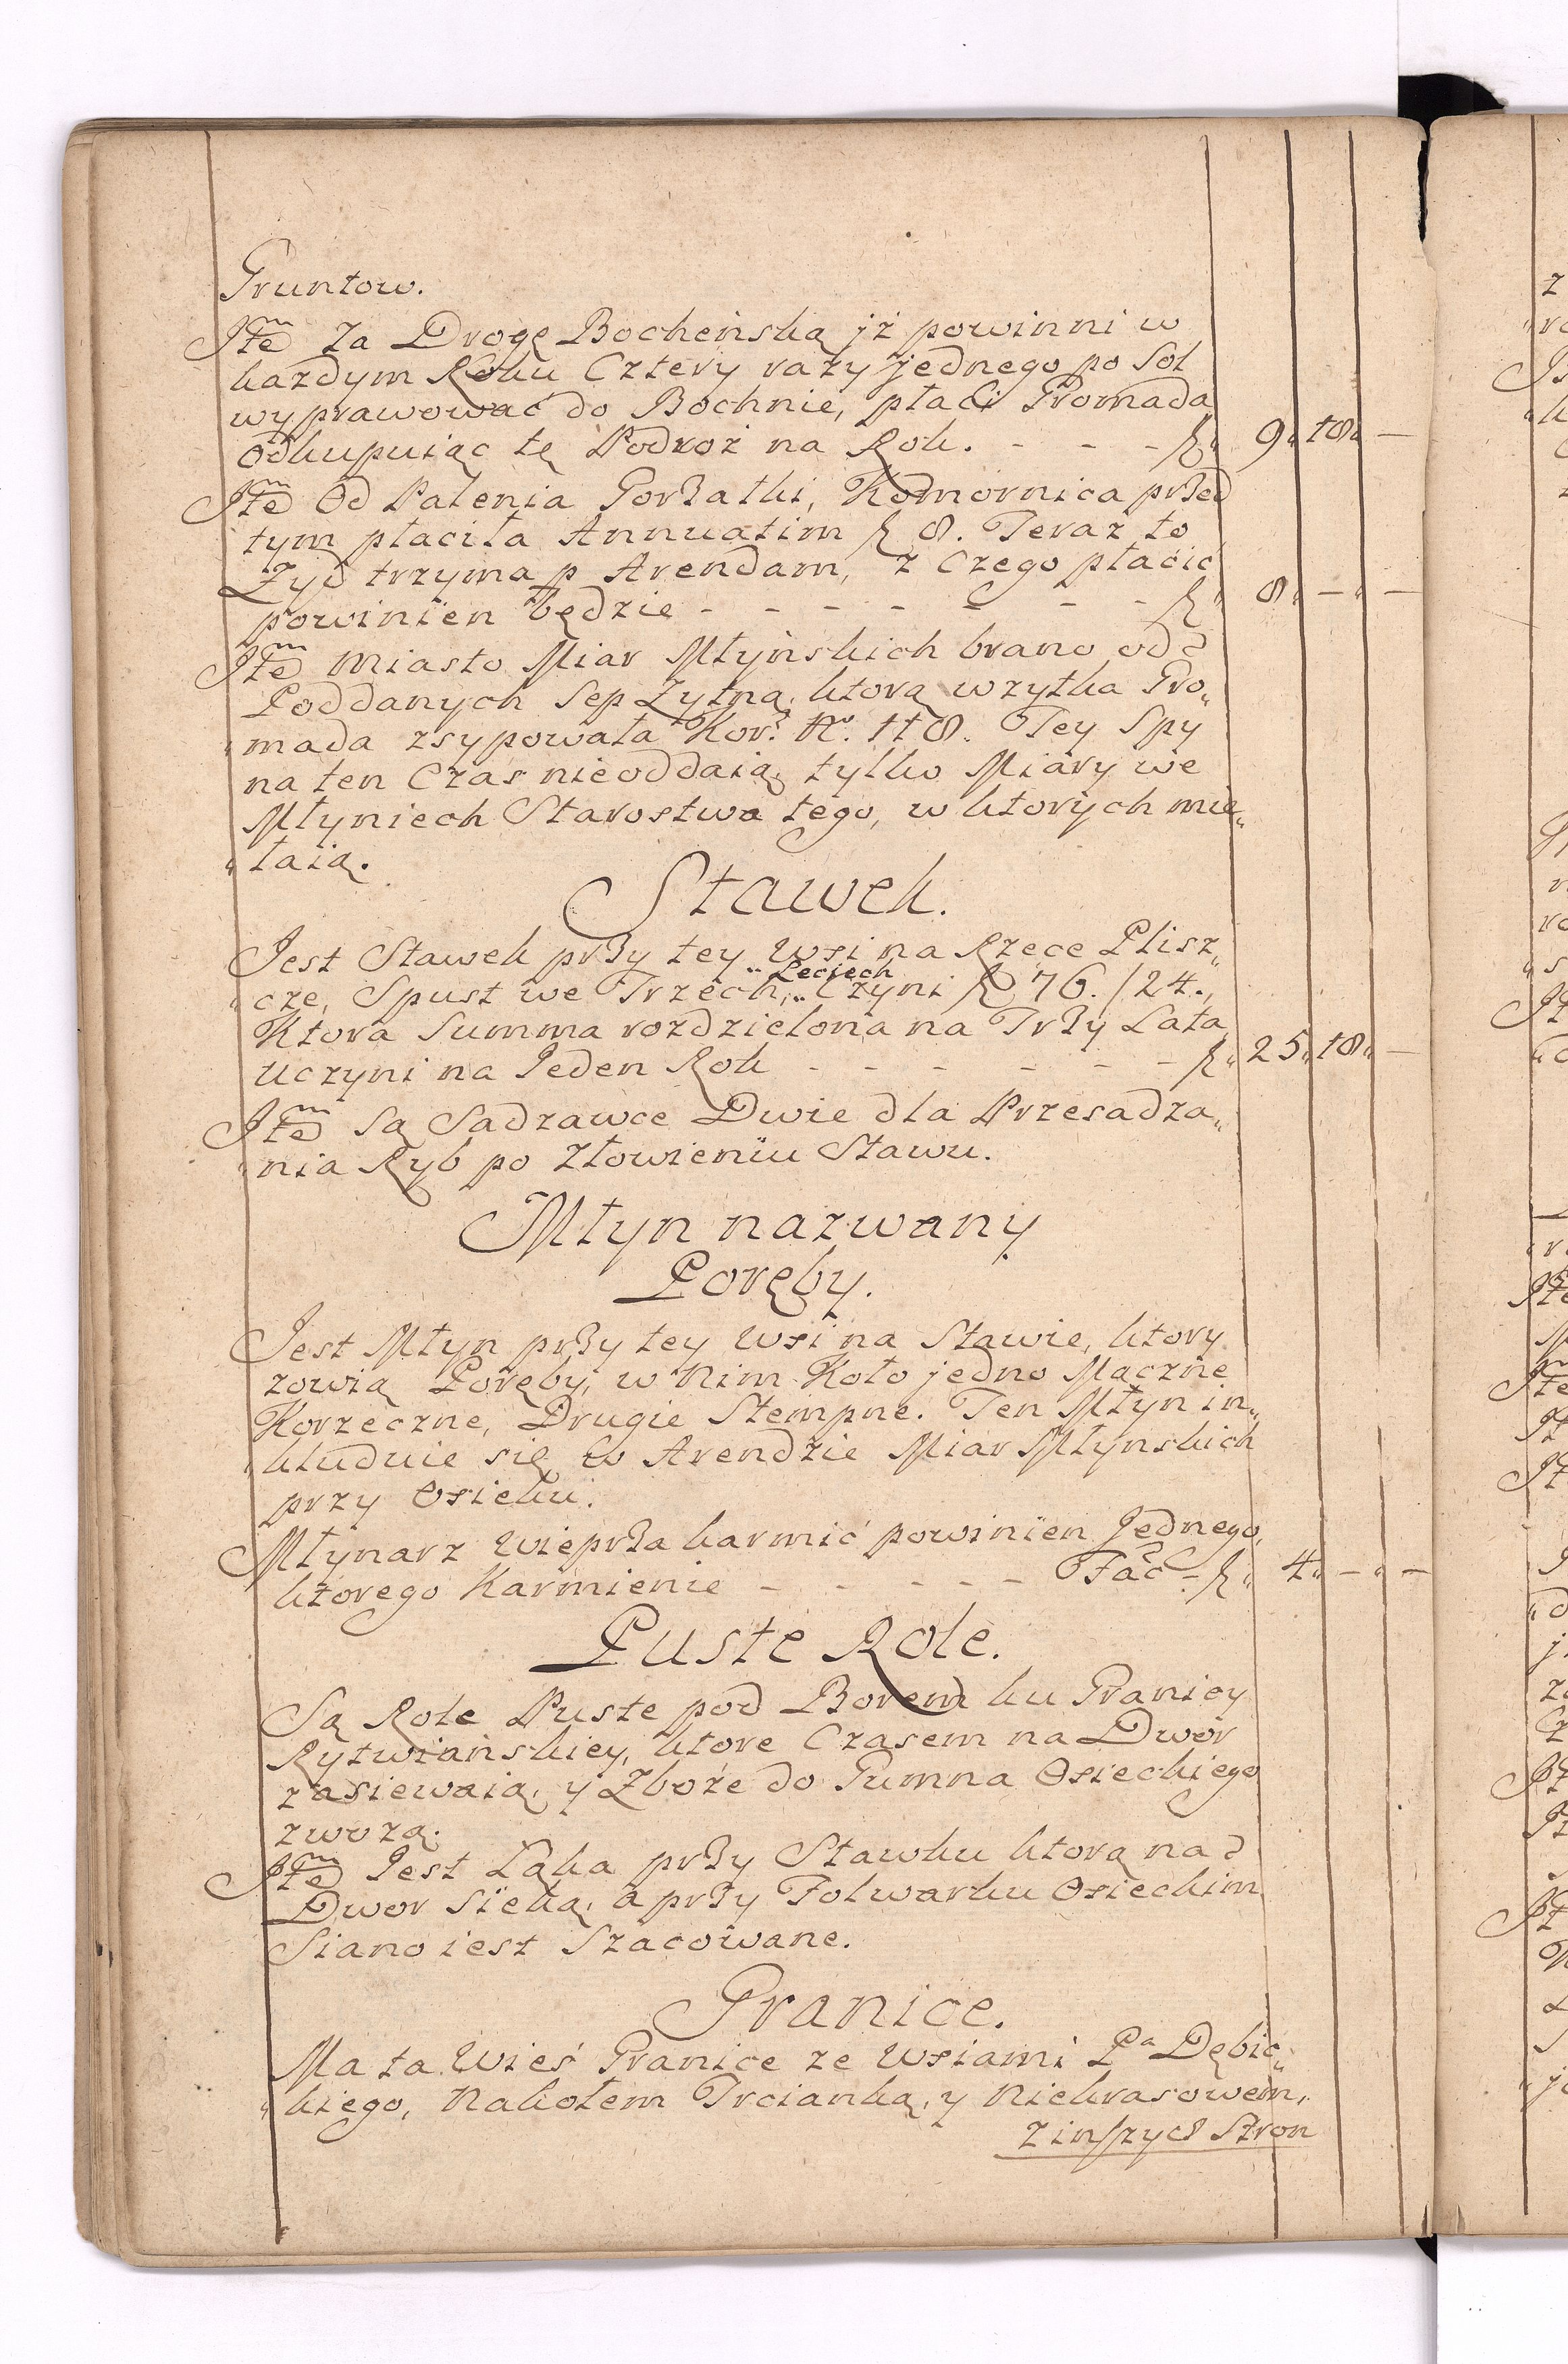 Gruntow.
Jtem Za Drogę Bocheńską jż powinni w
każdym Roku Cztery razy jednego po Sol
wyprawować do Bochnie, płaci Gromada
odkupuiąc tę Podroż na Rok. - - - f „ 9 „ 18 „ —
Jtem Od Palenia Gorzałki, Komornica przed
tym płaciła Annuatim f 8. Teraz to
Żyd trzyma p Arendam, z Czego płacić
powinien będzie - - - - - - - f „ 8 „ — „ —
Jtem miasto Miar Młyńskich brano od
Poddanych Sep Żytną, ktorą wzytka Gro„
„mada zsypowała Kor: No. 118. Tey Spy
na ten Czas nieoddaią, tylko Miary we
Młyniech Starostwa tego, w ktorych mie„
„łaią.
Stawek.
Jest Stawek przy tey Wsi na Rzece Plisz„
Leciech
„cze, Spust we Trzech, Czyni f 76. /24.,
Ktora Summa rozdzielona na Trzy Lata
uczyni na Jeden Rok - - - - - - f „ 25 „ 18 „ —
Jtem Są Sadzawce Dwie dla Przesadza„
„nia Ryb po Złowieniu Stawu.
Młyn nazwany
Poręby.
Jest Młyn przy tey Wsi na Stawie, ktory
zowią Poręby, w Nim Koło jedno Mączne
Korzeczne, Drugie Stempne. Ten Młyn in„
„kluduie się w Arendzie Miar Młynskich
przy Osieku.
Młynarz Wieprza karmić powinien Jednego,
ktorego Karmienie - - - - - Fac - f „ 4 „ — „ —
Puste Role.
Są Role Puste pod Borem ku Granicy
Rytwianskiey, ktore Czasem na Dwor
zasiewaią, y Zboże do Gumna Osieckiego
zwożą.
Jtem Jest Łąka przy Stawku ktorą na
Dwor sieką, a przy Folwarku Osieckim
Siano iest Szacowane.
Granice.
Ma ta Wieś Granice ze Wsiami Pa Dębic„
„kiego, Nakołem Trcianką, y Niekrasowem,
z inszych Stron